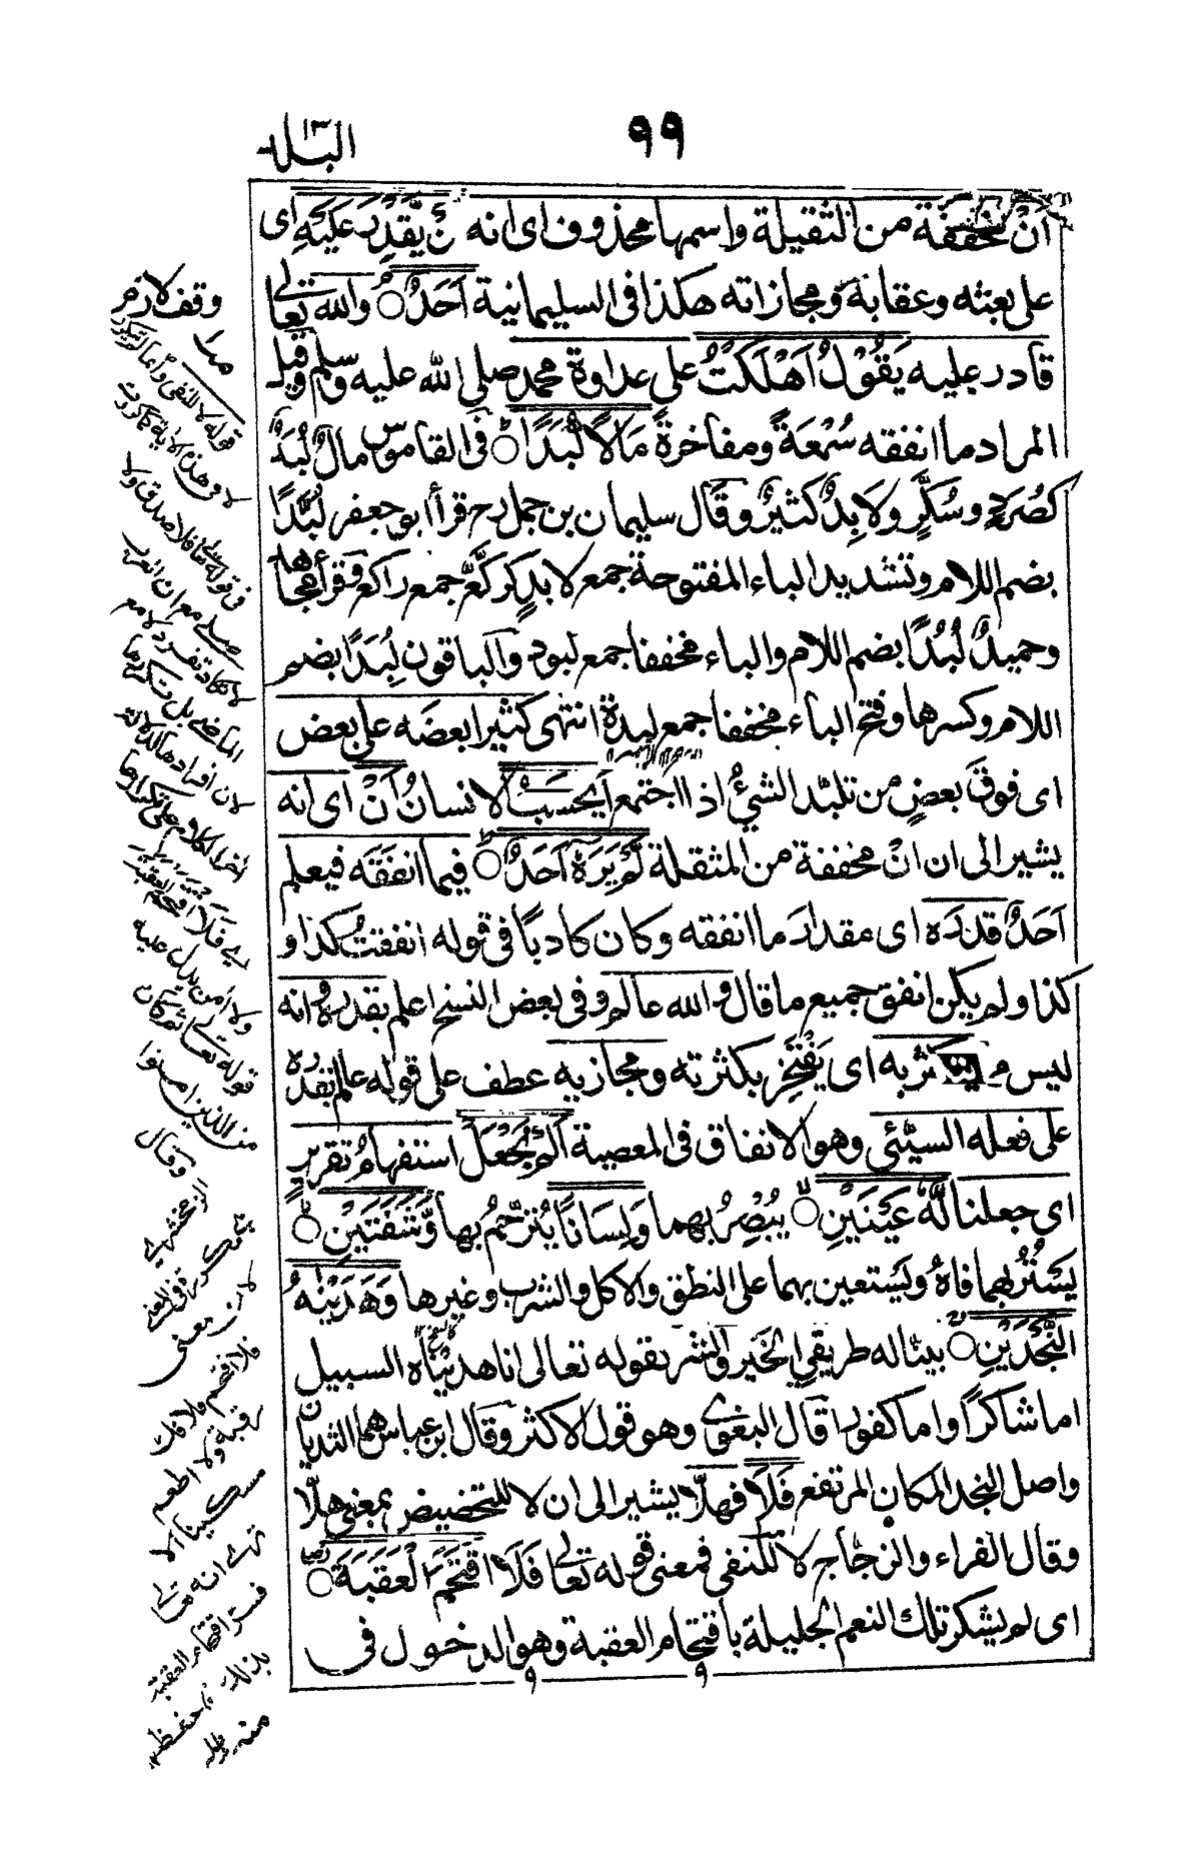 ٩٩
البلد
أَنْ مخففة من الثقيلة واسمها محذوف اى انه لَّنْ يَّقْدِرَ عَلَيْهِ اى
على بعثه وعقابه ومجازاته هكذا فى السليمانية اَحَدٌ ○ والله تعالى
قادر عليه يَقُوْلُ اَهْلَكْتُ على عداوة محمد صلى الله عليه وسلم وقيل
المراد ما انفقه سُمْعَةً ومفاخرةً مَالًا لُّبَدًا ○ فى القاموس مالٌ لُبَدٌ
كصُرَدٍ وسُكَّرٍ ولَابِدٌ كثيرٌ وقال سليمان بن جمل رح قرأ ابو جعفر لُبَّدًا
بضم اللام وتشديد الباء المفتوحة جمع لابدٍ كركَّعٍ جمع راكع وقرأ مجاهد
وحميدٌ لُبُدًا بضم اللام والباء مخففا جمع لبود والباقون لِبَدًا بضم
اللام وكسرها وفتح الباء مخففا جمع لبدة انتهى كثيرا بعضه على بعض
اى فوق بعضٍ من تلبّد الشئُ اذا اجتمع اَيَحْسَبُ الانسانُ اَنْ اى انه
يشير الى ان انْ مخففة من المثقلة لَّمْ يَرَهٗ اَحَدٌ ○ فيما انفقه فيعلم
اَحَدٌ قدرَه اى مقدار ما انفقه وكان كاذبًا فى قوله انفقتُ كذا و
كذا ولم يكن انفق جميع ما قال والله عالم وفى بعض النسخ اعلم بقدره وانه
ليس مما يتكثر به اى يَفْتَخِر بكثرته ومجازيه عطف على قوله عالم بقدره
على فعله السيّئى وهو الانفاق فى المعصية اَلَمْ نَجْعَلْ استفهامُ تقريرٍ
اى جعلنا لَّهٗ عَيْنَيْنِ ○ يُبْصِرُ بهما وَلِسَانًا يُتَرْجِمُ بها وَّشَفَتَيْنِ ○
يَسْتُرُ بهما فاهُ ويَستعين بهما على النطق والاكل والشرب وغيرها وَهَدَيْنٰهُ
النَّجْدَيْنِ ○ بيناله طريقى الخير والشر بقوله تعالى انا هديناه السبيل
اما شاكرًا واما كفورا قال البغوى وهو قول الاكثر وقال ابن عباس هما الثديان
واصل النجد المكان المرتفع فَلَا فهلّا يشير الى ان لا للتحضيض بمعنى هلّا
وقال الفراء والزجّاج لا للنفى فمعنى قوله تعالى فَلَا اقْتَحَمَ الْعَقَبَةَ ○
اى لم يشكر تلك النعم الجليلة باقتحام العقبة وهو الدخول فى
وقف لازم
قوله لا للنفى
فى قوله تعالى فلا صدق ولا
صلى مع ان العرب
لا تكاد تفرد لا مع
الماضى بل
لان
اى فلا اقتحم العقبة
ولا امن يدل عليه
قوله تعالى ثم كان
من الذين امنوا
وقال
الزمخشرى
لان معنى
فلا اقتحم فلا فك
رقبة ولا اطعم
مسكينا الا
ترى انه
فسر اقتحام العقبة
بذلك فاحفظ
منه